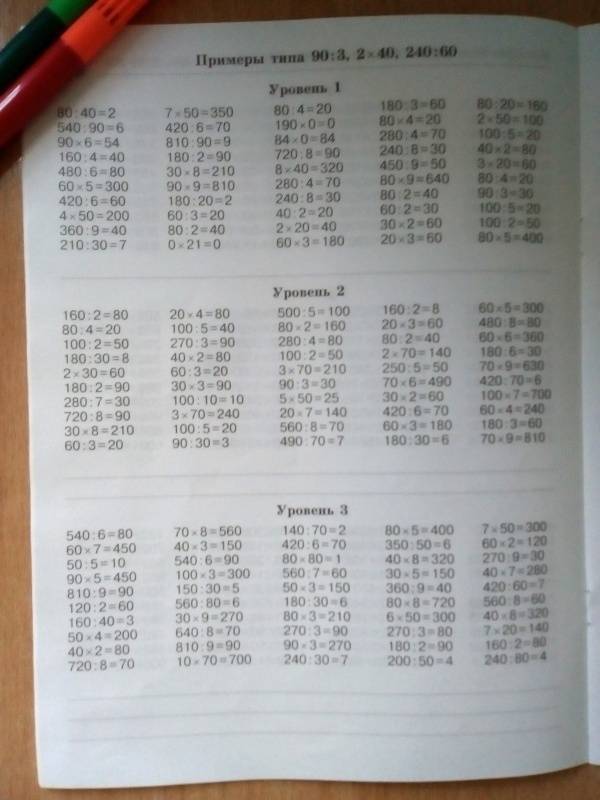 Примеры типа 90:3, 2×40, 240:60
Уровень 1
80:40=2
540:90=6
90×6=54
160:4=40
480:6=80
60×5=300
420:6=60
4×50=200
360:9=40
210:30=7
7×50=350
420:6=70
810:90=9
180:2=90
30×8=210
90×9=810
180:20=2
60:3=20
80:2=40
0×21=0
80:4=20
190×0=0
84×0=84
720:8=90
8×40=320
280:4=70
240:8=30
40:2=20
2×20=40
60×3=180
180:3=60
80×4=20
280:4=70
240:8=30
450:9=50
80×9=640
80:2=40
60:2=30
30×2=60
20×3=60
80:20=160
2×50=100
100:5=20
40×2=80
3×20=60
80:4=20
90:3=30
100:5=20
100:2=50
80×5=400
Уровень 2
160:2=80
80:4=20
100:2=50
180:30=8
2×30=60
180:2=90
280:7=30
720:8=90
30×8=210
60:3=20
20×4=80
100:5=40
270:3=90
40×2=80
60:3=20
30×3=90
100:10=10
3×70=240
100:5=20
90:30=3
500:5=100
80×2=160
280:4=80
100:2=50
3×70=210
90:3=30
5×50=25
20×7=140
560:8=70
490:70=7
160:2=8
20×3=60
80:2=40
2×70=140
250:5=50
70×6=490
30×2=60
420:6=70
60×3=180
180:30=6
60×5=300
480:8=80
60×6=360
180:6=30
70×9=630
420:70=6
100×7=700
60×4=240
180:3=60
70×9=810
Уровень 3
540:6=80
60×7=450
50:5=10
90×5=450
810:9=90
120:2=60
160:40=3
50×4=200
40×2=80
720:8=70
70×8=560
40×3=150
540:6=90
100×3=300
150:30=5
560:80=6
30×9=270
640:8=70
810:9=90
10×70=700
140:70=2
420:6=70
80×80=1
560:7=60
50×3=150
180:30=6
80×3=210
270:3=90
90×3=270
240:30=7
80×5=400
350:50=6
40×8=320
30×5=150
360:9=40
80×8=720
6×50=300
270:3=80
180:2=90
200:50=4
7×50=300
60×2=120
270:9=30
40×7=280
420:60=7
560:8=60
40×8=320
7×20=140
160:2=80
240:80=4